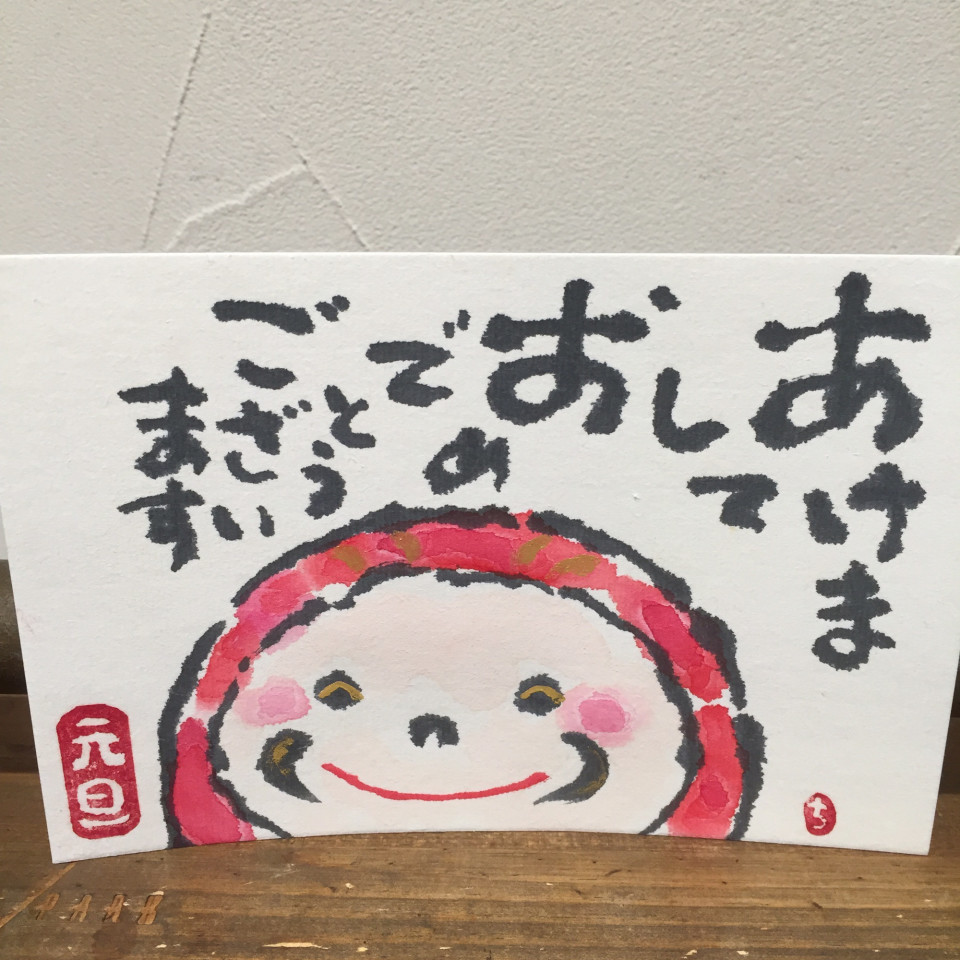 あけま
して
おめ
でとう
ござい
ます
元旦
ち